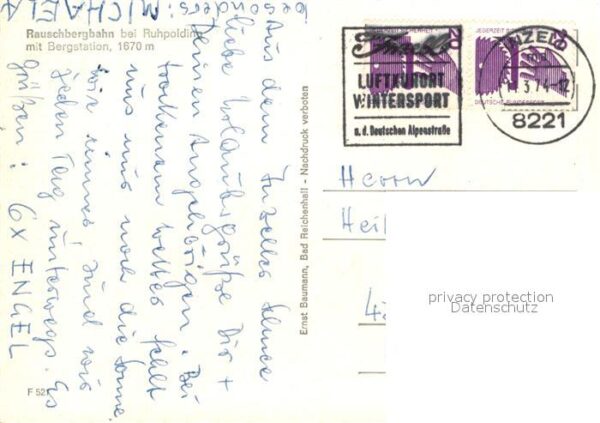 Rauschbergbahn bei Ruhpolding
mit Bergstation, 1670 m
Aus dem Inzeller Schnee
liebe Urlaubsgrüße Dir +
Deinen Angehörigen. Bei
trockenem Wetter fehlt
uns nur noch die Sonne
wir sind wir
jeden Tag unterwegs. Es
grüßen: 6x ENGEL
besonders: MICHAELA
F 52
Ernst Baumann, Bad Reichenhall - Nachdruck verboten
Inzell
LUFTKURORT
WINTERSPORT
a. d. Deutschen Alpenstraße
JEDERZEIT SICHERHEIT
JEDERZEIT
DEUTSCHE BUNDESPOST
INZELL
3.74-12
8221
Herrn
Heil
privacy protection
Datenschutz